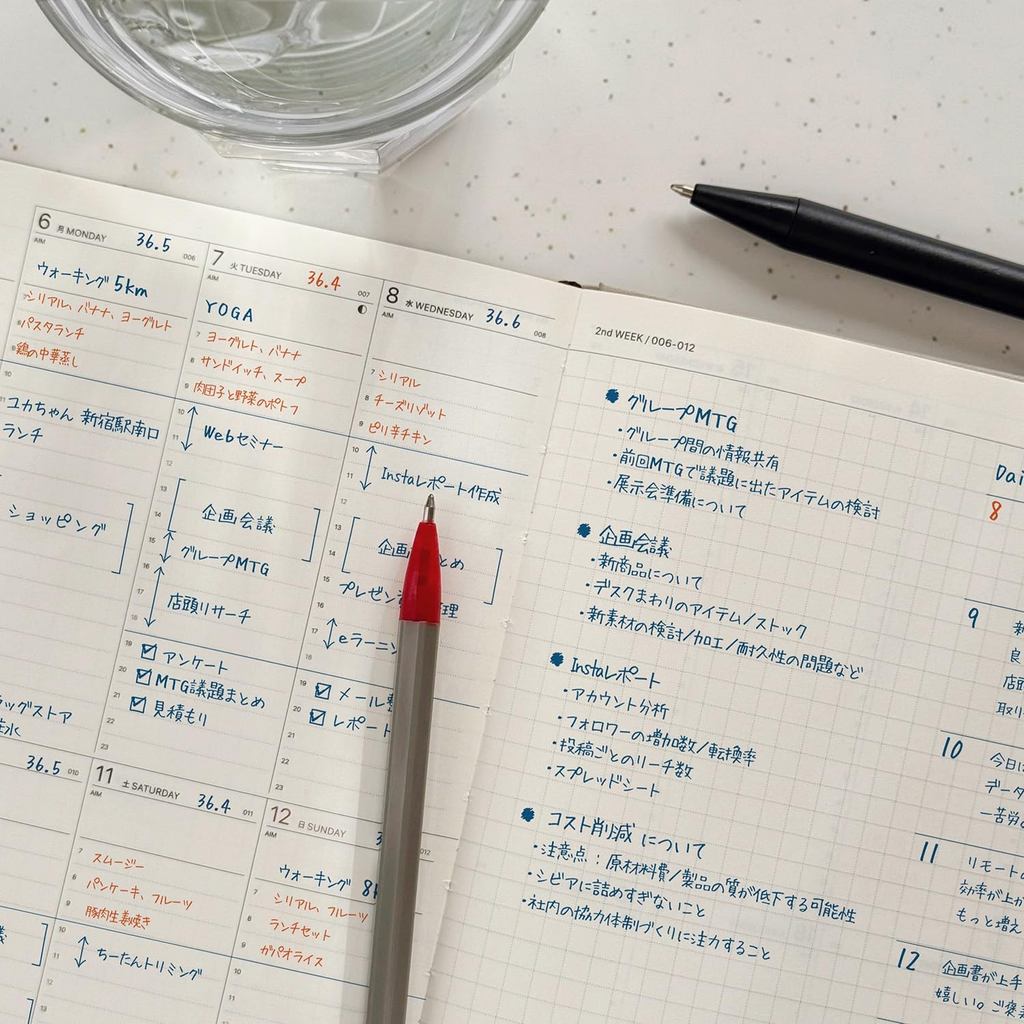 6 月 MONDAY 36.5 006
AIM
ウォーキング 5km
シリアル、バナナ、ヨーグルト
パスタランチ
鶏の中華蒸し
10
11 ユカちゃん 新宿駅南口
ランチ
ショッピング
ラッグストア
7 火 TUESDAY 36.4 007
AIM
YOGA
7 ヨーグルト、バナナ
8 サンドイッチ、スープ
9 肉団子と野菜のポトフ
10
11 Webセミナー
12
13
14 企画会議
15 グループMTG
16
17 店頭リサーチ
18
19 アンケート
20 MTG議題まとめ
21 見積もり
22
23
8 水 WEDNESDAY 36.6 008
AIM
7 シリアル
8 チーズリゾット
9 ピリ辛チキン
10
11 Instaレポート作成
12
13
14 企画 まとめ
15 プレゼン 理
16
17 eラーニン
18
19 メール
20 レポート
21
22
23
36.5 010
11 土 SATURDAY 36.4 011
AIM
7 スムージー
8 パンケーキ、フルーツ
9 豚肉生姜焼き
10
11 ちーたんトリミング
12
13
12 日 SUNDAY 012
AIM
ウォーキング
7 シリアル、フルーツ
8 ランチセット
9 ガパオライス
10
11
2nd WEEK / 006-012
グループMTG
・グループ間の情報共有
・前回MTGで議題に出たアイテムの検討
・展示会準備について
企画会議
・新商品について
・デスクまわりのアイテム/ストック
・新素材の検討/加工/耐久性の問題など
Instaレポート
・アカウント分析
・フォロワーの増加数/転換率
・投稿ごとのリーチ数
・スプレッドシート
コスト削減 について
・注意点:原材料費/製品の質が低下する可能性
・シビアに詰めすぎないこと
・社内の協力体制づくりに注力すること
Dai
8
9 新
良
店頭
取り
10 今日に
データ
一苦労
11 リモート
効率が上が
もっと増え
12 企画書が上手
嬉しい。ご褒美